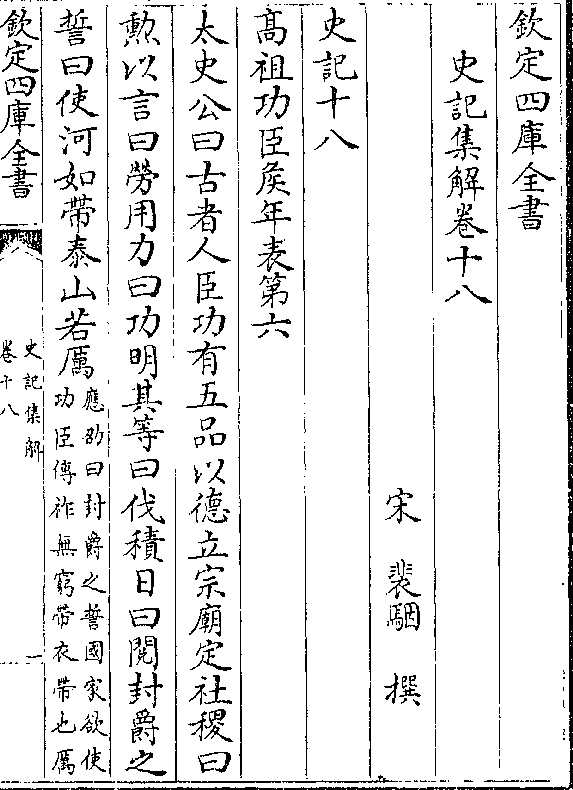 欽定四庫全書
史記集解卷十八
宋 裴駰 撰
史記十八
髙祖功臣侯年表第六
太史公曰古者人臣功有五品以德立宗廟定社稷曰
勲以言曰勞用力曰功明其等曰伐積日曰閲封爵之
誓曰使河如帶泰山若厲應劭曰封爵之誓國家欲使
功臣傳祚無窮帶衣帶也厲
欽定四庫全書
史記集解
卷十八
一